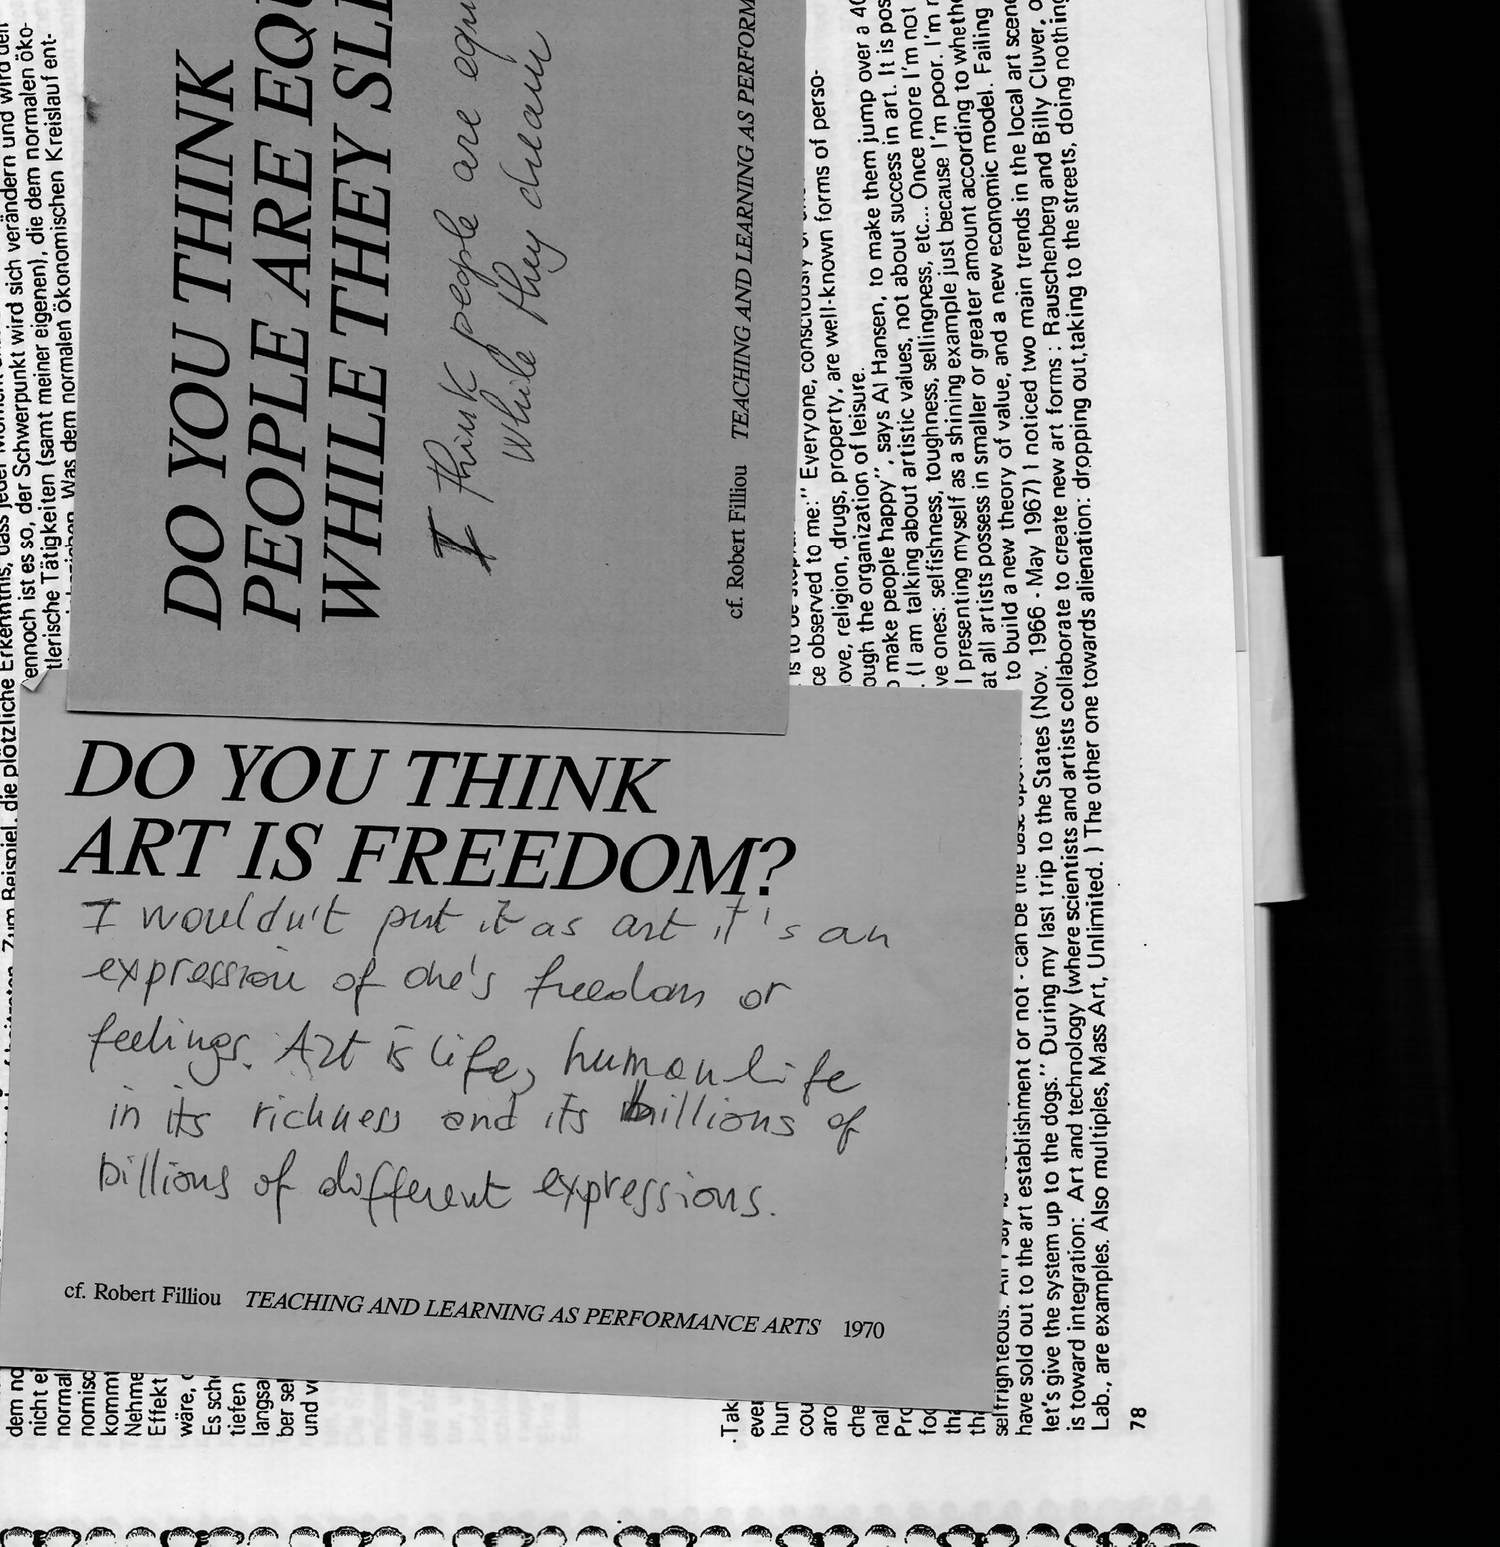 DO YOU THINK
PEOPLE ARE
WHILE THEY
I think people are
while they dream
cf. Robert Filliou TEACHING AND LEARNING AS
DO YOU THINK
ART IS FREEDOM?
I wouldn't put it as art it's an
expression of one's freedom or
feelings. Art is life, human life
in its richness and its billions of
billions of different expressions.
cf. Robert Filliou TEACHING AND LEARNING AS PERFORMANCE ARTS 1970
die plötzliche Erkenntnis, dass jeder
ennoch ist es so, der Schwerpunkt wird sich verändern und wird den
tlerische Tätigkeiten (samt meiner eigenen), die dem normalen öko-
Was dem normalen ökonomischen Kreislauf ent-
dem no
nicht ei
normal
nomisc
kommt
Nehme
Effekt
wäre,
Es sch
tiefen
langsa
ber sel
und v
ce observed to me:" Everyone, consciously
ove, religion, drugs, property, are well-known forms of perso-
ough the organization of leisure.
make people happy", says Al Hansen, to make them jump over a 40
(I am talking about artistic values, not about success in art. It is pos
ve ones: selfishness, toughness, sellingness, etc... Once more I'm not
I presenting myself as a shining example just because I'm poor. I'm
at all artists possess in smaller or greater amount according to wheth
to build a new theory of value, and a new economic model. Failing
selfrighteous.
have sold out to the art establishment or not - can be the
let's give the system up to the dogs." During my last trip to the States (Nov. 1966 - May 1967) I noticed two main trends in the local art scene
is toward integration: Art and technology (where scientists and artists collaborate to create new art forms : Rauschenberg and Billy Cluver,
Lab., are examples. Also multiples, Mass Art, Unlimited. ) The other one towards alienation: dropping out, taking to the streets, doing nothing
78